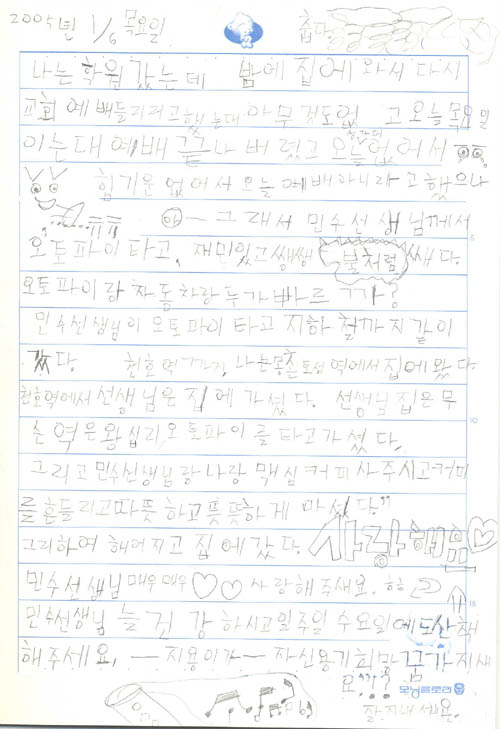 2005년 1/6 목요일 춥다
나는 학원 갔는데 밤에 집에와서 다시
교회에 배들리려고 했는대 아무것도없고 오늘 목요일
이는대 예배 끝나 버렸고 오늘 없어서
힘기운 없어서 오늘 예배아니라고 했으나
그래서 민수선생님께서
오토파이타고, 재미있고 쌩쌩 불처럼 쌔다.
오토파이랑 차동차랑 누가 빠르ㄱ가?
민수선생님이 오토파이 타고 지하철까지 같이
갔다. 천호역까지, 나는 몽촌토성역에서 집에 왔다.
천호역에서 선생님은 집에 가셨다. 선생님 집은 무
슨역은 왕십리, 오토파이를 타고가셨다.
그리고 민수선생님랑 나랑 맥심커피 사주시고 커피
를 흔들리고 따뜻하고 뜻뜻하게 마셨다."
그리하여 해어지고 집에 갔다. 사랑해
민수선생님 매우매우 ♡♡ 사랑해주새요.
민수선생님 늘 건강하시고 일주일 수요일에 도산책
해주세요, — 지용이가 — 자신용기희망꿈가지새
요??
모닝글로리
잘지내세요.